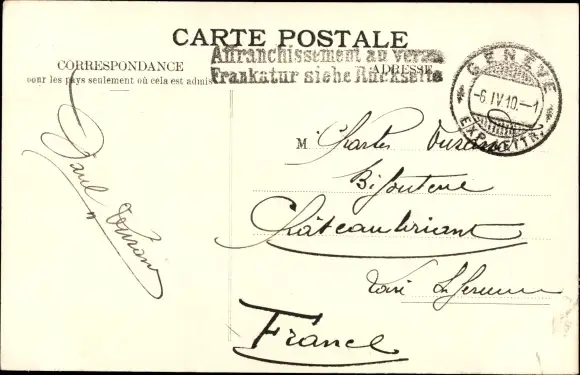 CARTE POSTALE
Affranchissement au verso
Frankatur siehe Rückseite
CORRESPONDANCE
pour les pays seulement où cela est admis
ADRESSE
GENÈVE
-6.IV.10.-1
EXP. LETTR.
M Charles
Bijouterie
Châteaubriant
Loire Inferieure
France
Paul